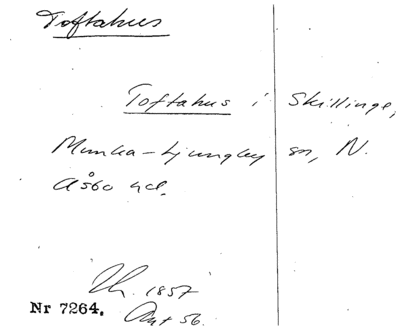 Toftahus
Toftahus i Skillinge,
Munka-Ljungby sn, N.
Åsbo hd.
1857
Nr 7264. Ant 56.